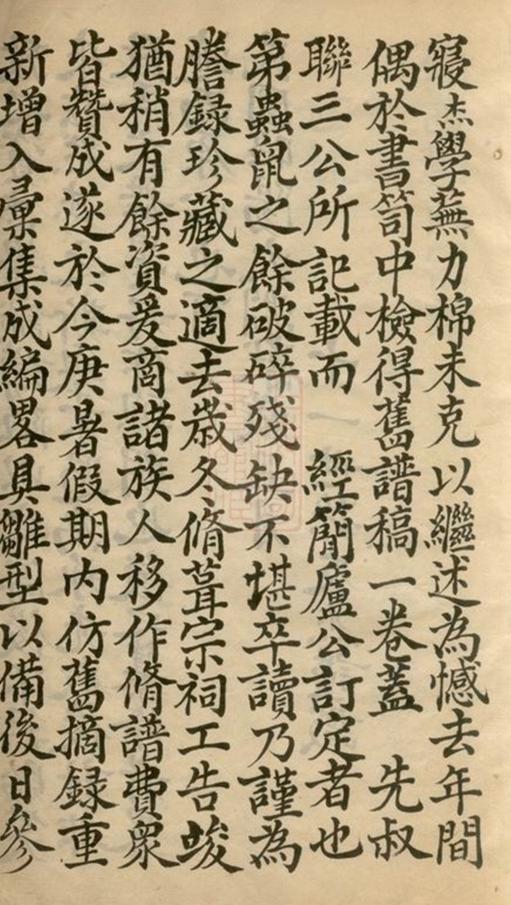 寢杰學蕪力棉未克以繼述為憾去年間
偶於書笥中檢得舊譜稿一卷蓋　先叔
聯三公所記載而　經簡廬公訂定者也
第蟲鼠之餘破碎殘缺不堪卒讀乃謹為
謄錄珍藏之適去歲冬脩葺宗祠工告竣
猶稍有餘資爰商諸族人移作脩譜費衆
皆贊成遂於今庚暑假期內仿舊摘録重
新增入彙集成編畧具雛型以備後日參